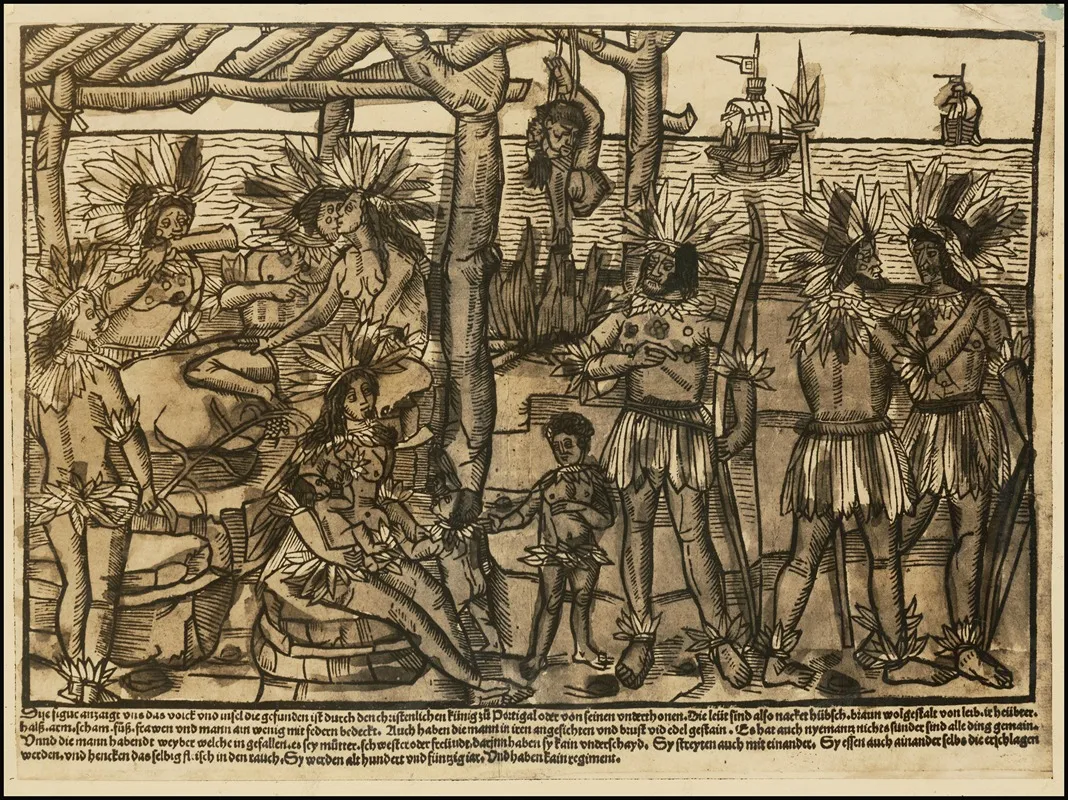 Dise figur anzaigt vns das volck vnd insel die gefunden ist durch den christenlichen künig zů Portigal oder von seinen vnderthonen. Die leüt sind also nacket hübsch. braun wolgestalt von leib. ir heübter.
halß. arm. scham. füß. frawen vnd mann ain wenig mit federn bedeckt. Auch haben die mann in iren angesichten vnd brust vil edel gestain. Es hat auch nyemantz nichts sunder sind alle ding gemain.
Vnnd die mann habendt weyber welche in gefallen. es sey můtter. schwester oder freündt. darjnn haben sy kain vnderschayd. Sy streyten auch mit einander. Sy essen auch ainander selbs die erschlagen
werden. vnd hencken das selbig flaisch in den rauch. Sy werden alt hundert vnd fünfftzig iar. Vnd haben kain regiment.